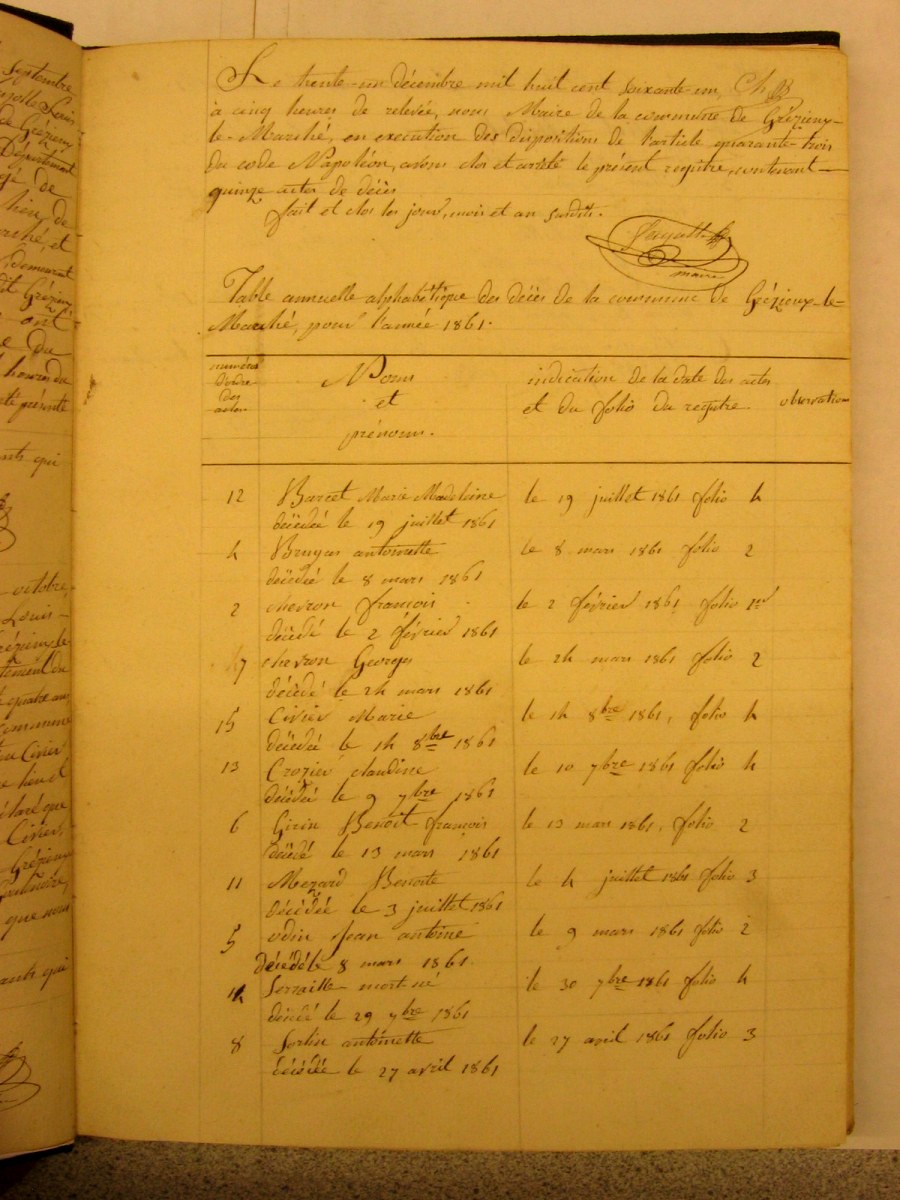 Septembre
de Grézieux
Département
de
lieu de
ché, et
demeurant
dit Grézieux
ont
du
heures du
présente
qui
octobre,
Louis
Grézieux-le-
quatre
commune
Civier
lieu
laré que
Civier,
Grézieux
que nous
qui
Le trente-un décembre mil huit cent soixante-un,
à cinq heures de relevée, nous Maire de la commune de Grézieux-
le-Marché, en execution des dispositions de l'article quarante-trois
du code Napoléon, avons clos et arrêté le présent registre, contenant
quinze actes de décès
fait et clos les jour, mois et an susdits.
maire
Table annuelle alphabétique des décès de la commune de Grézieux-le-
Marché, pour l'année 1861.
numéros Noms indication de la date des actes
d'ordre et et du folio du registre observation
des prénoms.
actes
12 Barcet Marie Madeleine le 19 juillet 1861 folio 4
décédée le 19 juillet 1861
4 Bruyas antoinette le 8 mars 1861 folio 2
décédée le 8 mars 1861
2 chevron françois le 2 février 1861 folio 1er
décédé le 2 février 1861
7 chevron Georges le 24 mars 1861 folio 2
décédé le 24 mars 1861
15 Civier Marie le 14 8bre 1861, folio 4
décédée le 14 8bre 1861
13 Crozier claudine le 10 7bre 1861 folio 4
décédée le 9 7bre 1861
6 Girin Benoît françois le 13 mars 1861, folio 2
décédé le 13 mars 1861
11 Mezard Benoite le 4 juillet 1861 folio 3
décédée le 3 juillet 1861
5 odin Jean antoine le 9 mars 1861 folio 2
décédé le 8 mars 1861.
mort né le 30 7bre 1861 folio 4
décédé le 29 7bre 1861
8 antoinette le 27 avril 1861 folio 3
décédée le 27 avril 1861